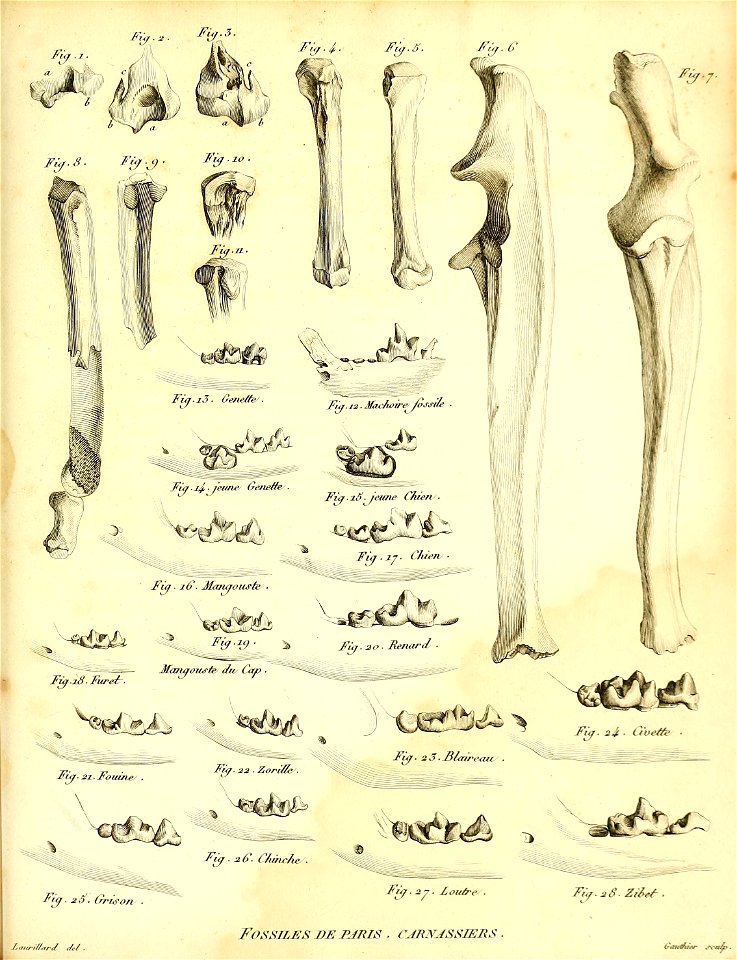 Fig. 1.
Fig. 2.
Fig. 3.
Fig. 4.
Fig. 5.
Fig. 6
Fig. 7.
a
b
c
b
a
c
a
b
Fig. 8.
Fig. 9.
Fig. 10.
Fig. 11.
Fig. 13. Genette.
Fig. 12. Machoire fossile.
Fig. 14. jeune Genette.
Fig. 15. jeune Chien.
Fig. 16. Mangouste.
Fig. 17. Chien.
Fig. 18. Furet.
Fig. 19.
Mangouste du Cap.
Fig. 20. Renard.
Fig. 21. Fouine.
Fig. 22. Zorille.
Fig. 23. Blaireau.
Fig. 24. Civette.
Fig. 25. Grison.
Fig. 26. Chinche.
Fig. 27. Loutre.
Fig. 28. Zibet.
FOSSILES DE PARIS. CARNASSIERS.
Laurillard del.
Gauthier sculp.